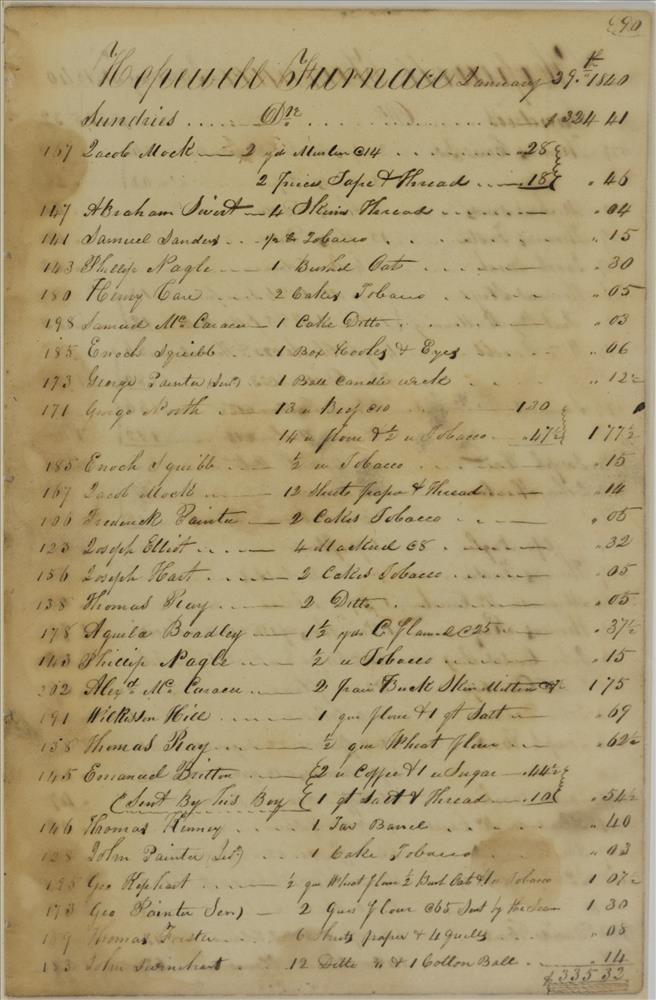 90
Hopewell Furnace January 29th 1840
Sundries ..... Dr. ........ $324 41
167 Jacob Mock — 2 yds Muslin @14 ..... 28
2 pieces Tape & Thread ... 18 " 46
147 Abraham Sivert — 4 Skeins Thread ..... " 04
141 Samuel Sanders ... ½ lb Tobacco ..... " 15
143 Phillip Nagle ... 1 Bushel Oats ..... " 30
180 Henry Care .... 2 Cakes Tobacco ..... " 05
198 Samuel McCaraeu — 1 Cake Ditto ..... " 03
185 Enoch Squibb .. 1 Box Hooks & Eyes " 06
173 George Painter Senr) 1 Ball Candle wick ..... " 12½
171 George North .. 13 " Beef @10 ..... 130
14 " flour & ½ " Tobacco .. 47½ 1 77½
185 Enoch Squibb ... ½ " Tobacco ..... " 15
167 Jacob Mock ... 12 Sheets paper & Thread ..... " 14
106 Frederick Painter — 2 Cakes Tobacco ..... " 05
123 Joseph Elliot .... 4 Mackerel @8 ..... " 32
156 Joseph Hart .... 2 Cakes Tobacco ..... " 05
138 Thomas Reay .... 2 Ditto ..... " 05
178 Aquila Boadley — 1½ yds C. flannel @25 ..... " 37½
143 Phillip Nagle .... ½ " Tobacco ..... " 15
202 Alexd. McCaraeu .. 2 pair Buck Skin Mittens 1 75
191 Wilkisson Hill ..... 1 qur flour & 1 qt Salt " 69
158 Thomas Reay .... ½ qur Wheat flour ... " 62½
145 Emanuel Britton ... 2 " Coffee & 1 " Sugar — 44½
(Sent By his Boy 1 qt Salt & Thread ... 10 " 54½
146 Thomas Kenney .... 1 Tar Barrel ..... " 40
128 John Painter 1 Cake Tobacco ..... " 03
195 Geo Kephart .... ½ qur Wheat flour ½ Bush Oats & 1 " Tobacco 1 07½
173 Geo Painter Senr) — 2 Qurs flour @65 Sent by the Team 1 30
189 Thomas Forster .. 6 Sheets paper & 4 quills .. " 08
183 John Swinehart .. 12 Ditto " & 1 Cotton Ball .. " 14
$335 32